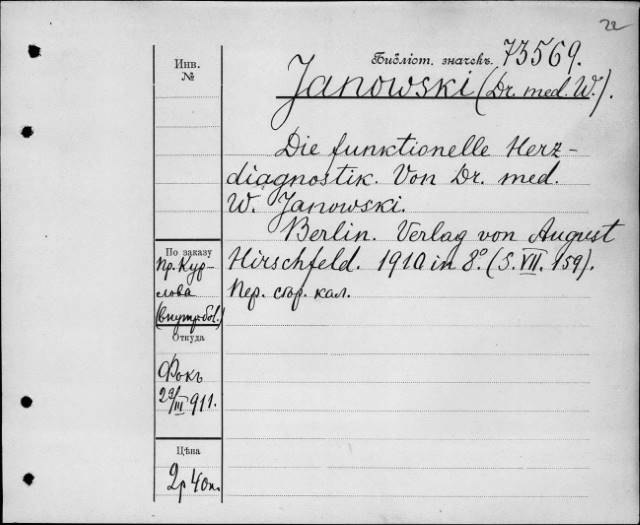 22
Библіот. значекъ. 73569.
Инв.
№
Janowski (Dr. med. W.).
Die funktionelle Herz-
diagnostik. Von Dr. med.
W. Janowski.
Berlin. Verlag von August
Hirschfeld. 1910 in 8° (S. VII. 159).
Пер. стор. кал.
По заказу
Пр. Кур-
лова
(внутр. бол.)
Откуда
Фокъ
23/III 911.
Цѣна
2р 40к.